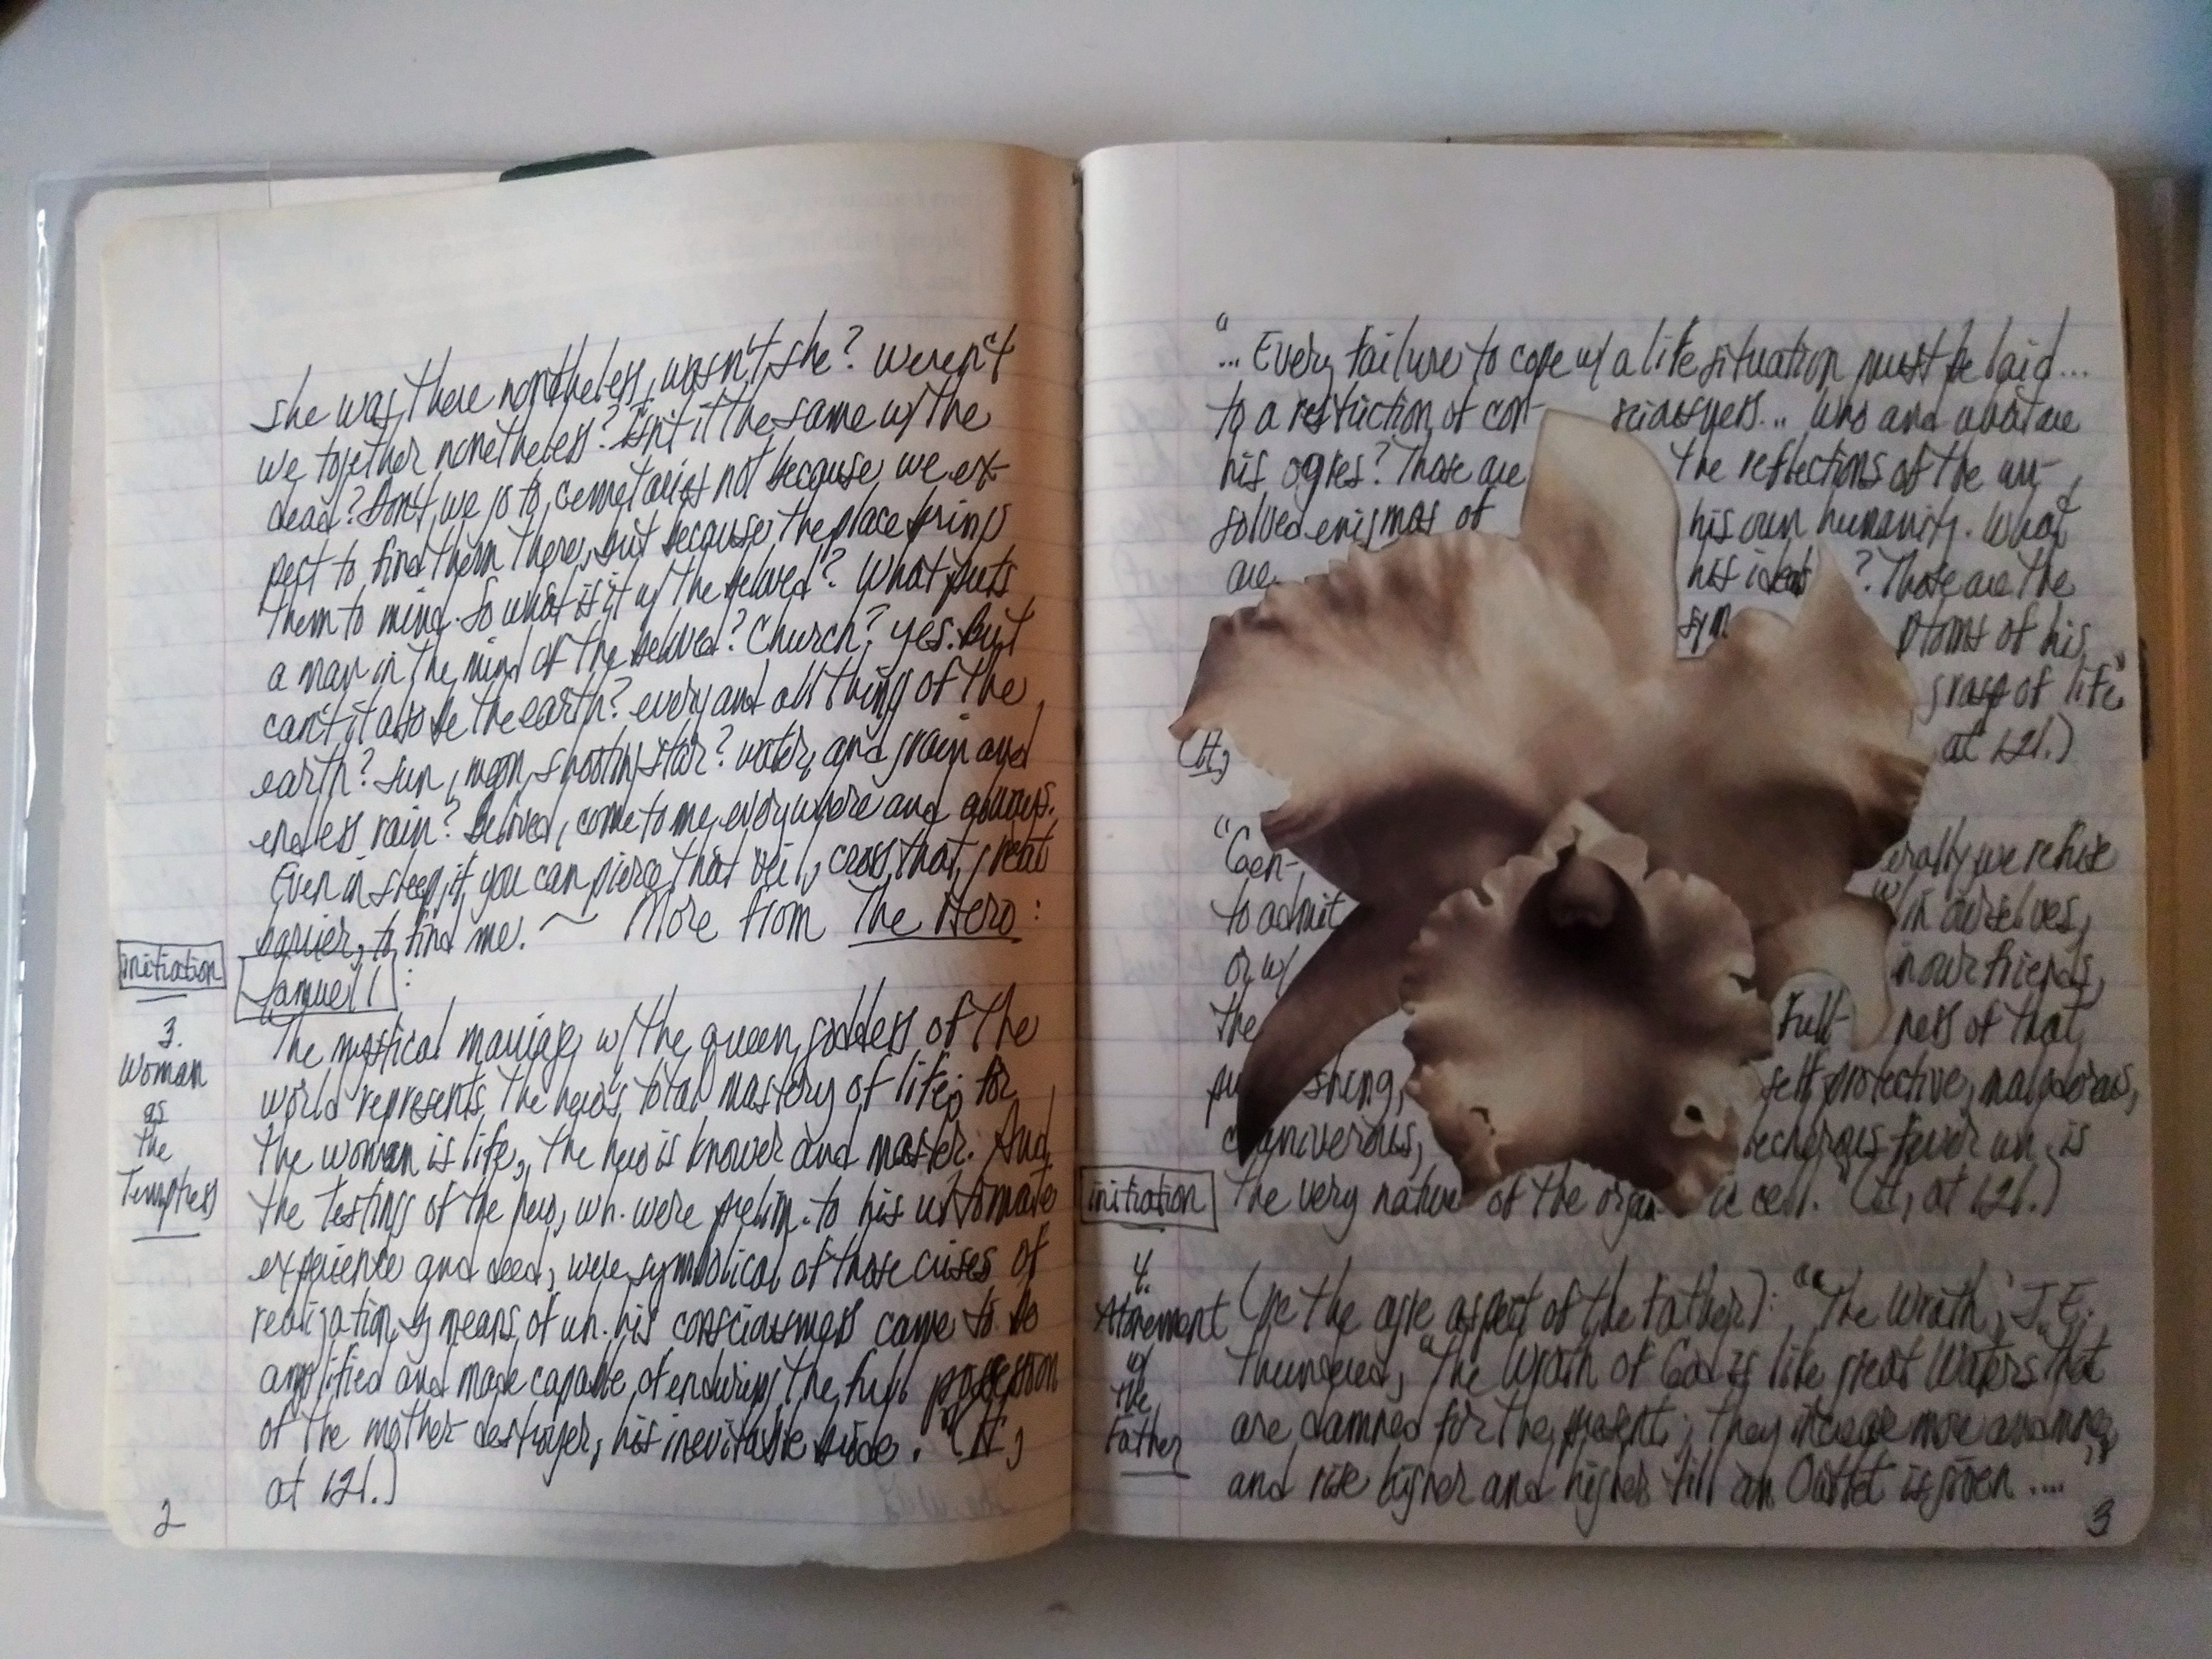 she was there nonetheless, wasn't she? Weren't
we together nonetheless? Isn't it the same w/ the
dead? Don't we go to cemetaries not because we ex-
pect to find them there, but because the place brings
them to mind. So what is it w/ the beloved? What puts
a man in the mind of the beloved? Church? Yes. But
can't it also be the earth? every and all thing of the
earth? Sun, moon, shooting star? water, and grain and
endless rain? Beloved, come to me everywhere and always.
Even in sleep, if you can pierce that veil, cross that great
barrier, to find me. ~ More from The Hero:
initiation
Samuel 1:
3.
Woman
as
the
Temptress
The mystical marriage w/ the queen goddess of the
world represents the hero's total mastery of life; for
the woman is life, the hero is knower and master. And
the testings of the hero, wh. were prelim. to his ultimate
experience and deed, were symbolical of those crises of
realization by means of wh. his consciousness came to be
amplified and made capable of enduring the full possession
of the mother-destroyer, his inevitable bride." (It,
at 121.)
2
"
... Every failure to cope w/ a life situation must be laid...
to a restriction of con- sciousness... Who and what are
his ogres? Those are the reflections of the un-
solved enigmas of his own humanity. What
are his ideals? Those are the
sym ptoms of his
grasp of life."
(It, at 121.)
"Gen- erally we refuse
to admit w/in ourselves,
or w/ in our friends,
the full- ness of that
pu shing, self-protective, malodorous,
carniverous, lecherous fever wh. is
the very nature of the organ ic cell." (It, at 121.)
initiation
4.
Atonement
w/
the
Father
(re the ogre aspect of the Father): "'The Wrath,' J.E.
thundered, "the Wrath of God is like great Waters that
are damned for the present; they increase more and more,
and rise higher and higher till an Outlet is given ...."
3